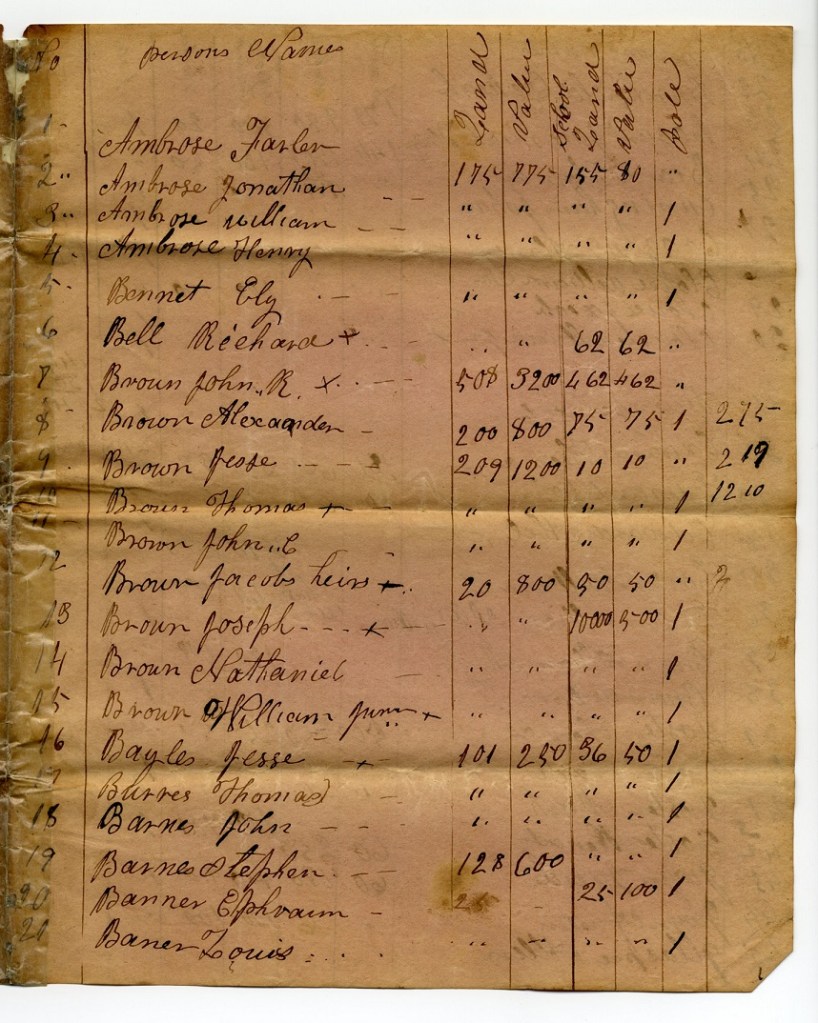 No persons Names Land Value School Land Value Pole
1 Ambrose Farler
2 " Ambrose Jonathan 175 775 155 80 "
3 " Ambrose William - - " " " " 1
4 - Ambrose Henry " " " " 1
5 - Bennet Ely - - - " " " " 1
6 Bell Reehard x - - " " 62 62 "
7 Broun John " R. x - - - 508 3200 462 462 "
8 Brown Alexander - 200 800 75 75 1 275
9 Brown Jesse - - - 209 1200 10 10 " 219
10 Brown Thomas x - " " " " 1 1210
11 - Brown John " C - " " " " 1
12 Brown Jacobs heirs x 20 800 50 50 " 2
13 Brown Joseph - - - x " " 1000 500 1
14 Brown Nathaniel - " " " " 1
15 Brown William Junr x " " " " 1
16 Bayles Jesse - x - 101 250 36 50 1
17 Burres Thomas " " " " 1
18 Barnes John - - - " " " " 1
19 Barnes Stephen - - - 128 600 " " 1
20 Banner Ephraim - 25 - 25 100 1
21 Baner Louis - - - - " " " " 1